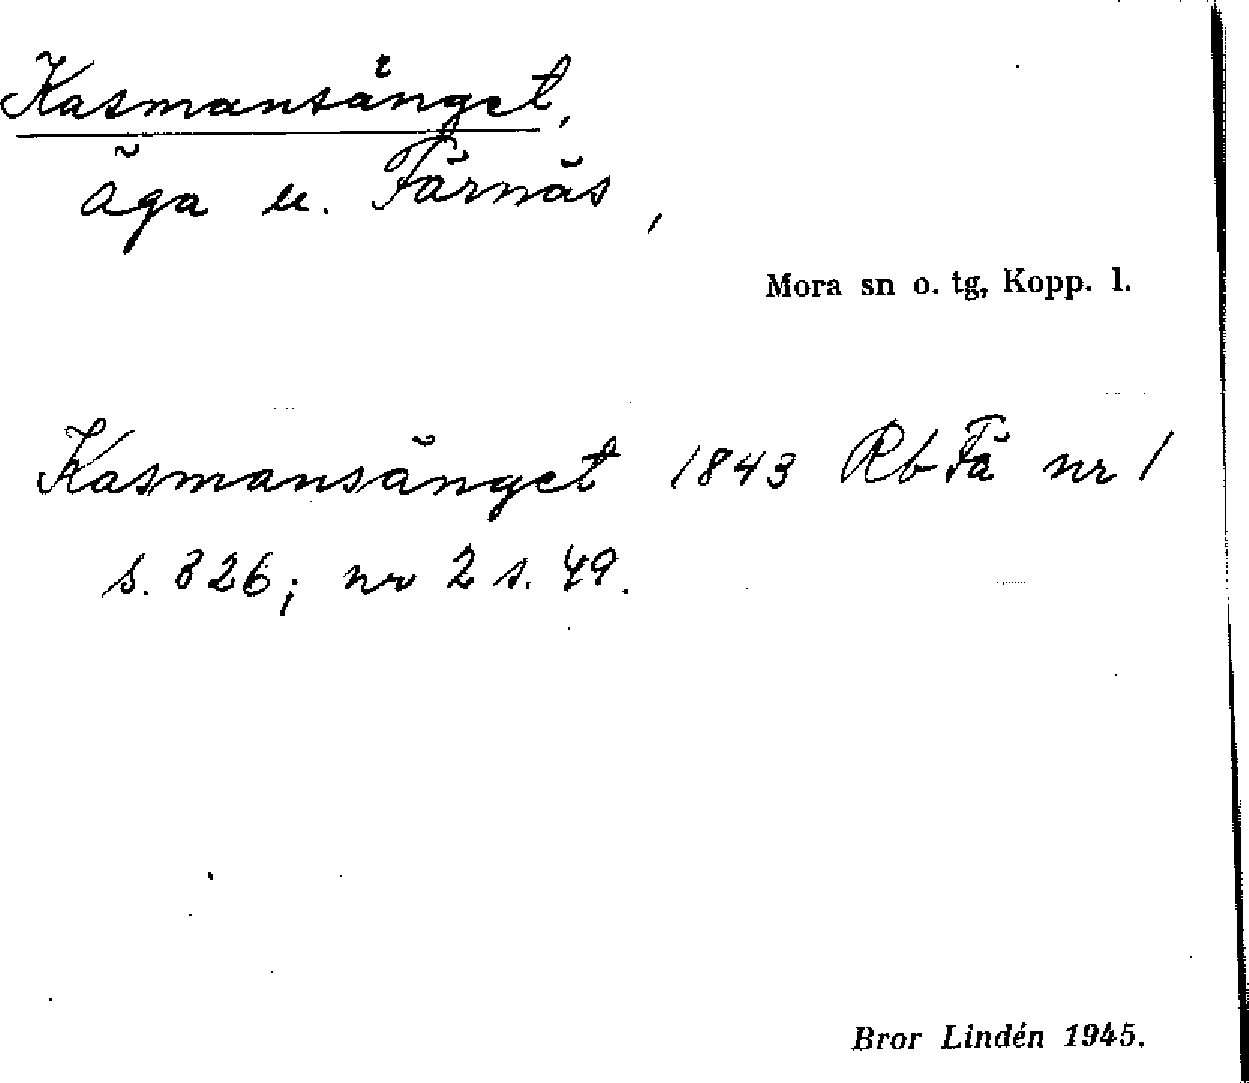 Kasmansänget,
äga u. Färnäs,
Mora sn o. tg, Kopp. l.
Kasmansänget 1843 Rb Fä nr 1
s. 326; nr 2 s. 49.
Bror Lindén 1945.